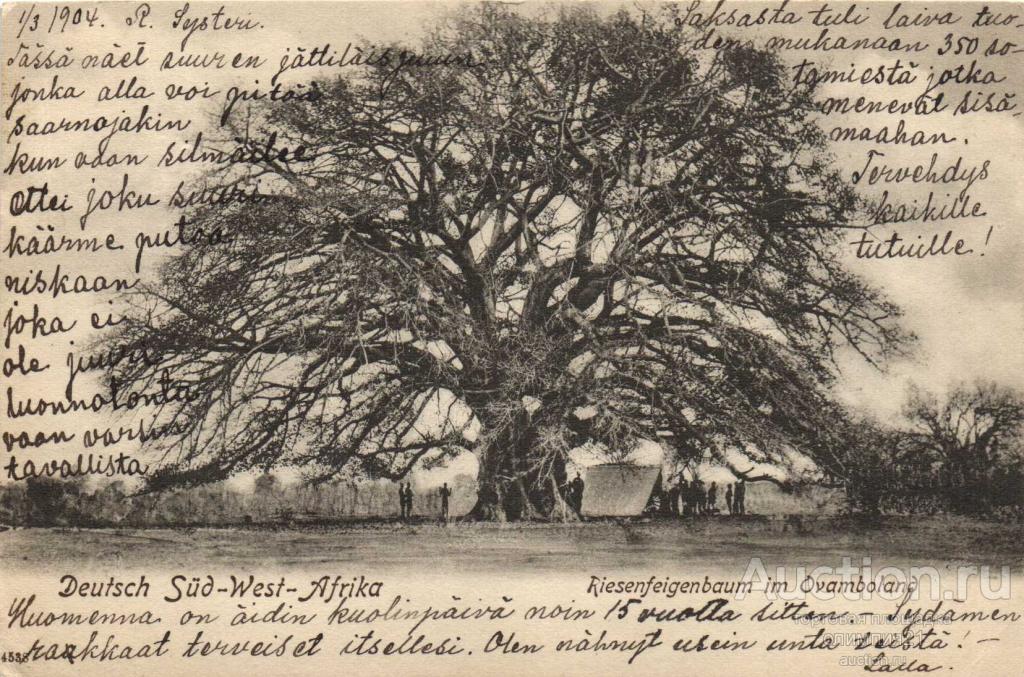 1/3 1904. R. Systeri.
Tässä näet suuren jättiläispuun
jonka alla voi pitää
saarnojakin
kun vaan silmäilee
ettei joku suuri
käärme putoa
niskaan
joka ei
ole juuri
luonnotonta
vaan varsin
tavallista
Saksasta tuli laiva tuo-
den mukanaan 350 so-
tamiestä jotka
menevät sisä-
maahan.
Tervehdys
kaikille
tutuille!
Deutsch Süd-West-Afrika
Riesenfeigenbaum im Ovamboland
Huomenna on äidin kuolinpäivä noin 15 vuotta sitten – Sydämen
rakkaat terveiset itsellesi. Olen nähnyt usein unta teistä! –
Laua.
4538
Auction.ru
торговая площадка
олимпия21
auction.ru